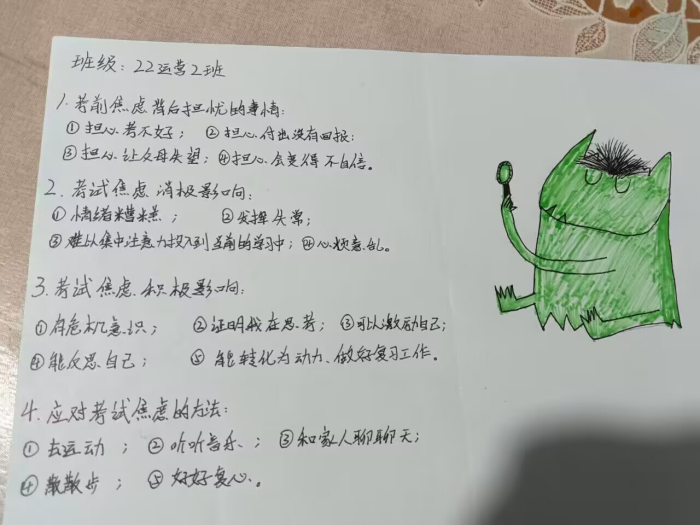 班级：22运营2班
1. 考前焦虑背后担忧的事情：
①担心考不好； ②担心付出没有回报；
③担心让父母失望；④担心会变得不自信。
2. 考试焦虑消极影响：
①情绪糟糕； ②发挥失常；
③难以集中注意力投入到当前的学习中；④心烦意乱。
3. 考试焦虑积极影响：
①有危机意识； ②证明我在思考； ③可以激励自己；
④能反思自己； ⑤能转化为动力、做好复习工作。
4. 应对考试焦虑的方法：
①去运动； ②听听音乐、； ③和家人聊聊天；
④散散步； ⑤好好复心。